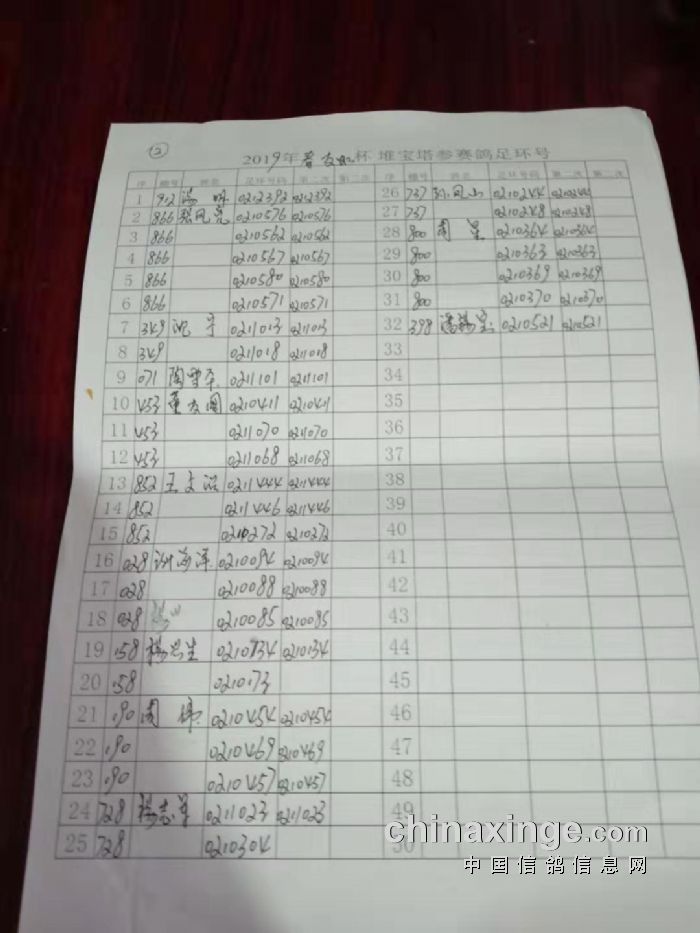 ②
2019年普友如杯 堆宝塔参赛鸽足环号
序 棚号 姓名 足环号码 第二次 第三次
1 912 0212392 0212392
2 866 0210576 0210576
3 866 0210562 0210562
4 866 0210567 0210567
5 866 0210580 0210580
6 866 0210571 0210571
7 349 沈 0211013 0211013
8 349 0211018 0211018
9 071 陶 0211101 0211101
10 453 董友国 0210411 0210411
11 453 0211070 0211070
12 453 0211068 0211068
13 852 王 0211444 0211444
14 852 0211446 0211446
15 852 0210272 0210272
16 028 0210094 0210094
17 028 0210088 0210088
18 028 0210085 0210085
19 58 杨 生 0210134 0210134
20 58 0210173
21 90 周 伟 0210454 0210454
22 90 0210469 0210469
23 90 0210457 0210457
24 728 杨志 0211023 0211023
25 728 0210304
序 棚号 姓名 足环号码 第二次 第三次
26 737 孙凤山 0210244 0210244
27 737 0210248 0210248
28 800 周 星 0210364 0210364
29 800 0210363 0210363
30 800 0210369 0210369
31 800 0210370 0210370
32 398 潘 0210521 0210521
33
34
35
36
37
38
39
40
41
42
43
44
45
46
47
48
49
50
chinaxinge.com
中国信鸽信息网